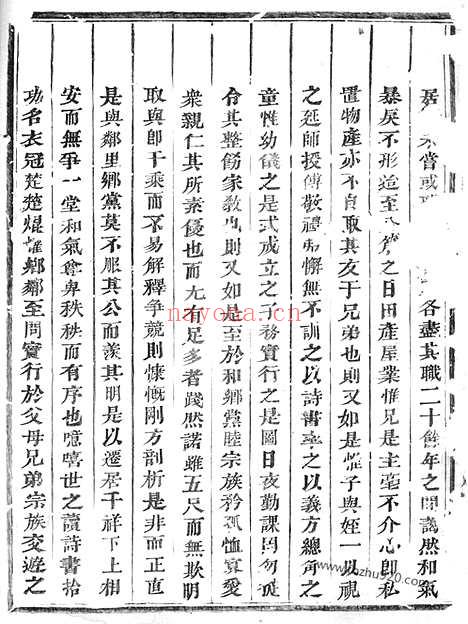 居 未嘗或 各盡其職二十餘年之間藹然和氣
暴戾不形迨至 之日田產屋業惟兄是主毫不介心即私
置物產亦不自取其友于兄弟也則又如是惟子與姪一以視
之延師授傳敬禮 懈無不訓之以詩書率之以義方總角之
童惟幼儀之是式成立之子務實行之是圖日夜勤課罔勿從
令其整飭家教也則又如是至於和鄉黨睦宗族矜孤恤寡愛
衆親仁其所素優也而尤有足多者踐然諾雖五尺而無欺明
取與即千乘而不易解釋爭競則慷慨剛方剖析是非而正直
是與鄰里鄉黨莫不服其公而羨其明是以遷居千祥下上相
安而無爭一堂和氣尊卑秩秩而有序也噫嘻世之讀詩書拾
功名衣冠楚楚焜耀鄉鄰至問實行於父母兄弟宗族交遊之
nayona.cn
www.nzhu520.com